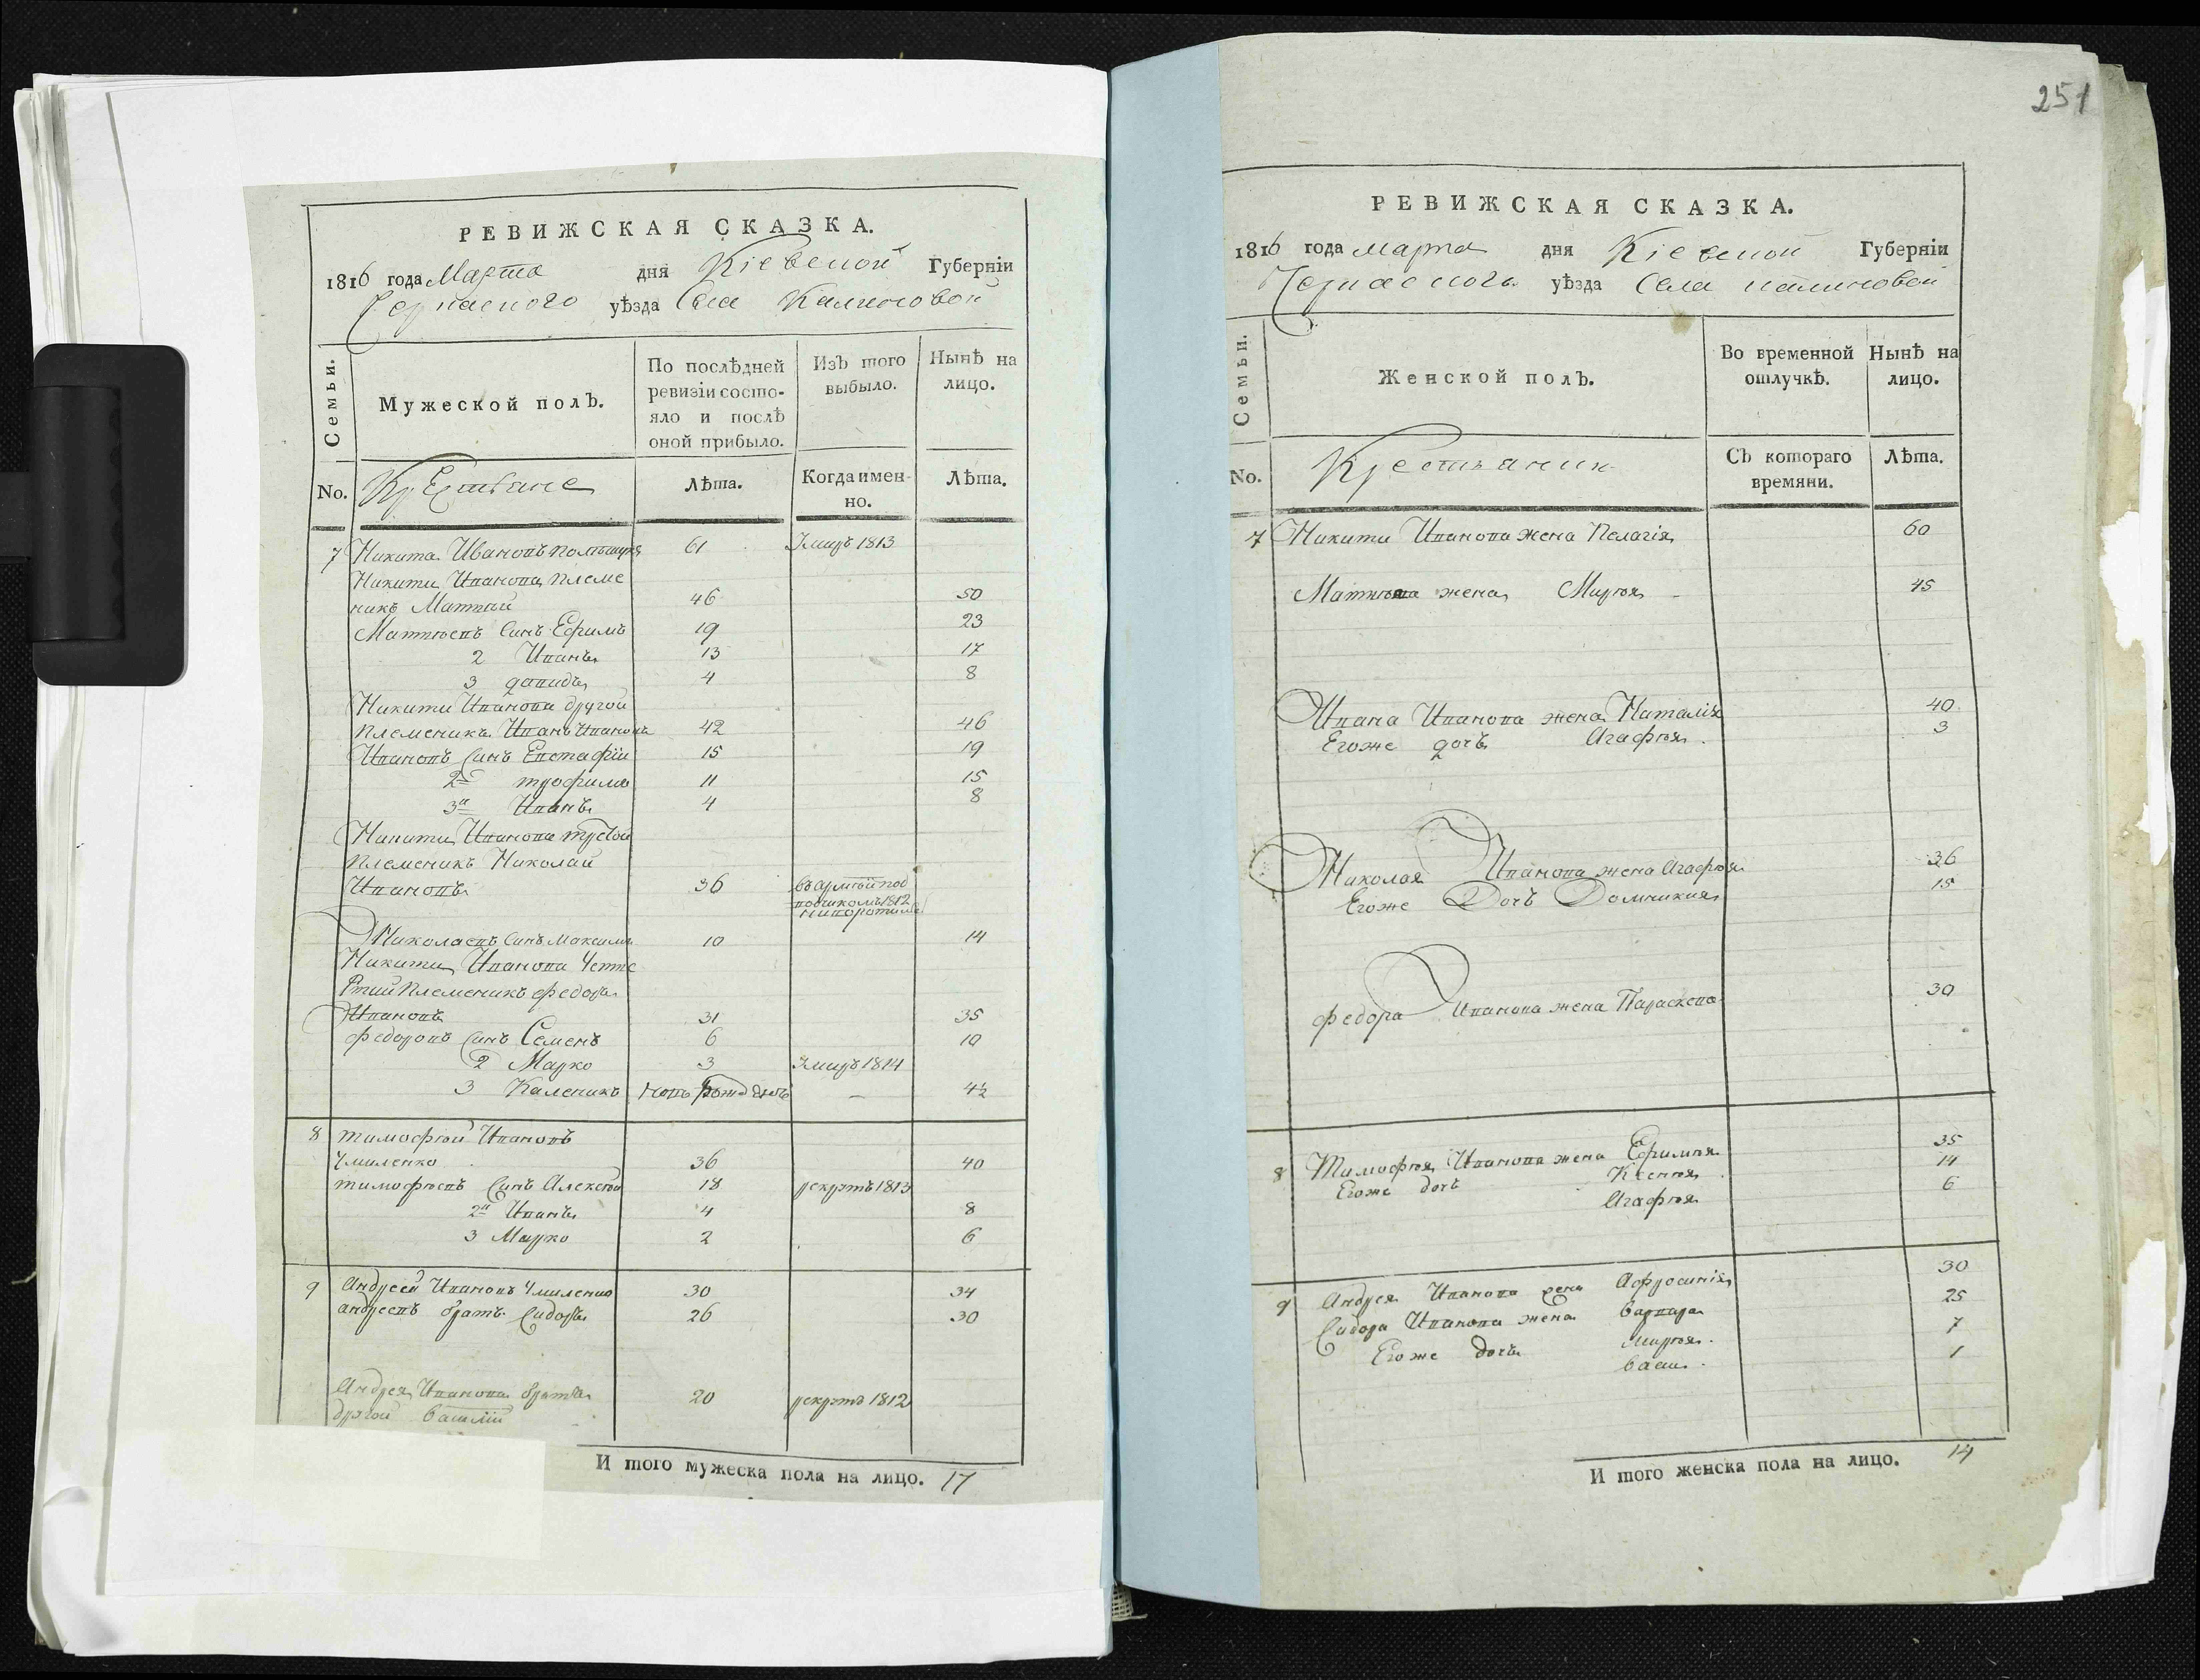 РЕВИЖСКАЯ СКАЗКА.
1816 года Марта дня Кіевской Губерніи
Черкаского уѣзда Села Калиновой
Семьи.
Мужеской полъ.
По послѣдней
ревизіи состо-
яло и послѣ
оной прибыло.
Изъ того
выбыло.
Нынѣ на
лицо.
No. Крестьяне Лѣта. Когда имен-
но. Лѣта.
7 Никита Ивановъ 61 Умиръ 1813
Никити Иванова племе
никъ Матвій 46 50
Матвіевъ синъ Ефимъ 19 23
2 Иванъ 13 17
3 давидъ 4 8
Никити Иванова другой
племеникъ Иванъ Ивановъ 42 46
Ивановъ синъ Евстафій 15 19
2й трофимъ 11 15
3й Иванъ 4 8
Никити Иванова третій
племеникъ Николай
Ивановъ 36 въ армѣй под
1812
Николаевъ синъ Максимъ 10 14
Никити Иванова Четве
ртий племеникъ федоръ
Ивановъ 31 35
федоровъ синъ Семенъ 6 10
2 Марко 3 Умиръ 1814
3 Каленикъ новъ рожденъ — 4½
8 тимофѣй Ивановъ
Чмиленко 36 40
тимофѣевъ синъ Алексѣй 18 рекрутъ 1813
2й Иванъ 4 8
3 Марко 2 6
9 Андрей Ивановъ Чмиленко 30 34
андреевъ братъ Сидоръ 26 30
Андрея Иванова братъ
другой василій 20 рекрутъ 1812
И того мужеска пола на лицо. 17
251
РЕВИЖСКАЯ СКАЗКА.
1816 года марта дня Кіевской Губерніи
Черкаского уѣзда Села калиновой
Семьи.
Женской полъ.
Во временной
отлучкѣ.
Нынѣ на
лицо.
No. Крестьянки Съ котораго
времяни. Лѣта.
7 Никити Иванова жена Пелагія 60
Матвѣя жена Марѳя 45
Ивана Иванова жена Наталія 40
Егоже дочъ Агафія 3
Николая Иванова жена Агафія 36
Егоже Дочъ Домникия 15
федора Иванова жена Параскева 30
8 Тимофѣя Иванова жена Ефимія 35
Егоже дочъ Ксенія 14
Агафія 6
9 Андрея Иванова жена Афросинія 30
Сидора Иванова жена варвара 25
Егоже дочъ Марія 7
васи. 1
И того женска пола на лицо. 14